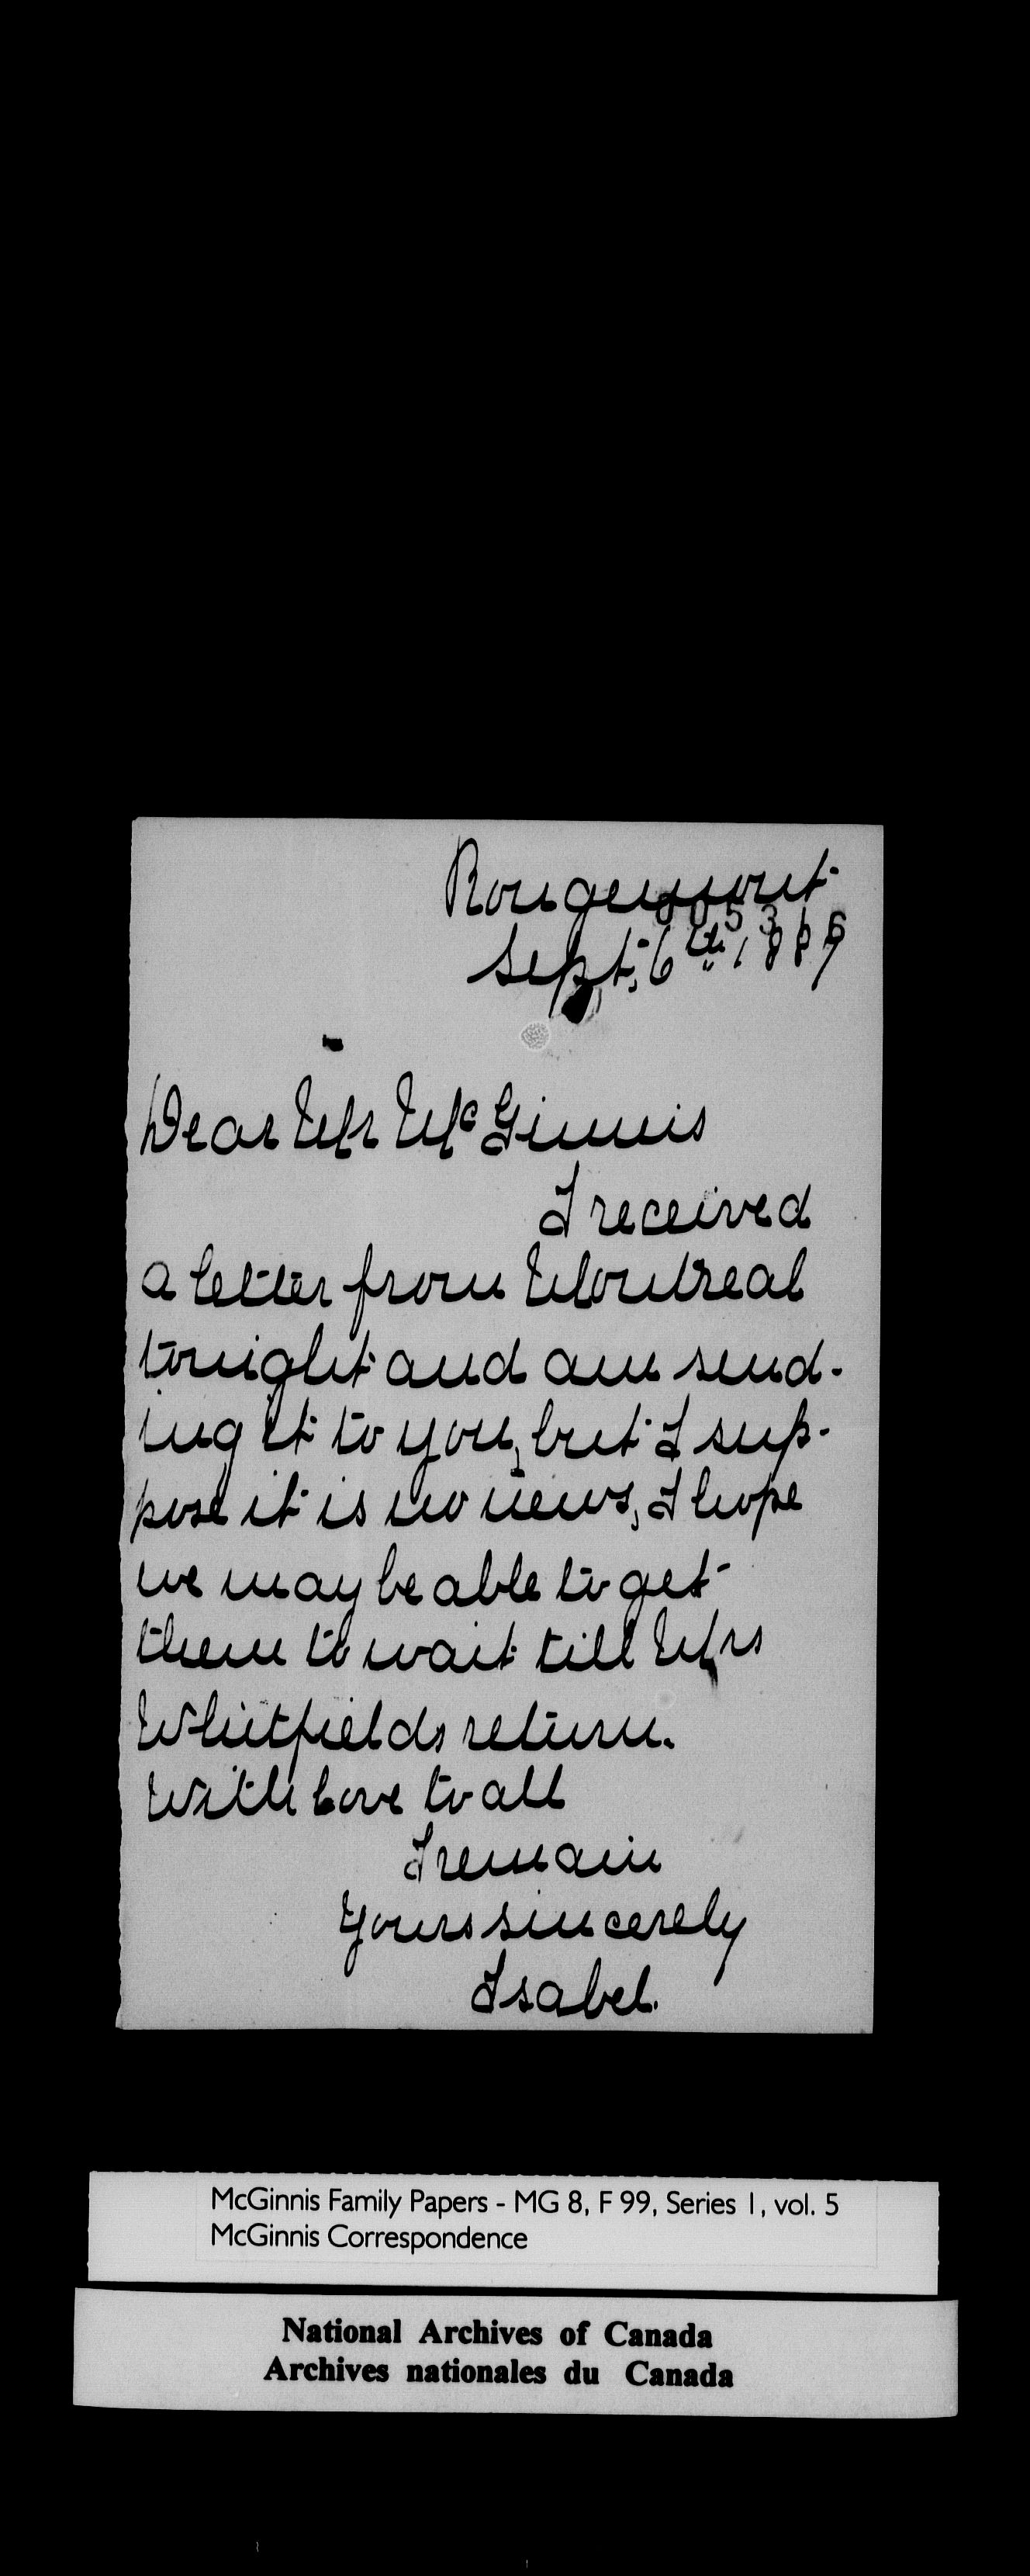 Rougemont
005316
Sept; 6th, 1889
Dear Mr McGinnis
I received
a letter from Montreal
tonight and am send-
ing it to you, but I sup-
pose it is no news, I hope
we may be able to get
them to wait till Mrs
Whitfields return.
With love to all
I remain
Yours sincerely
Isabel.
McGinnis Family Papers - MG 8, F 99, Series 1, vol. 5
McGinnis Correspondence
National Archives of Canada
Archives nationales du Canada